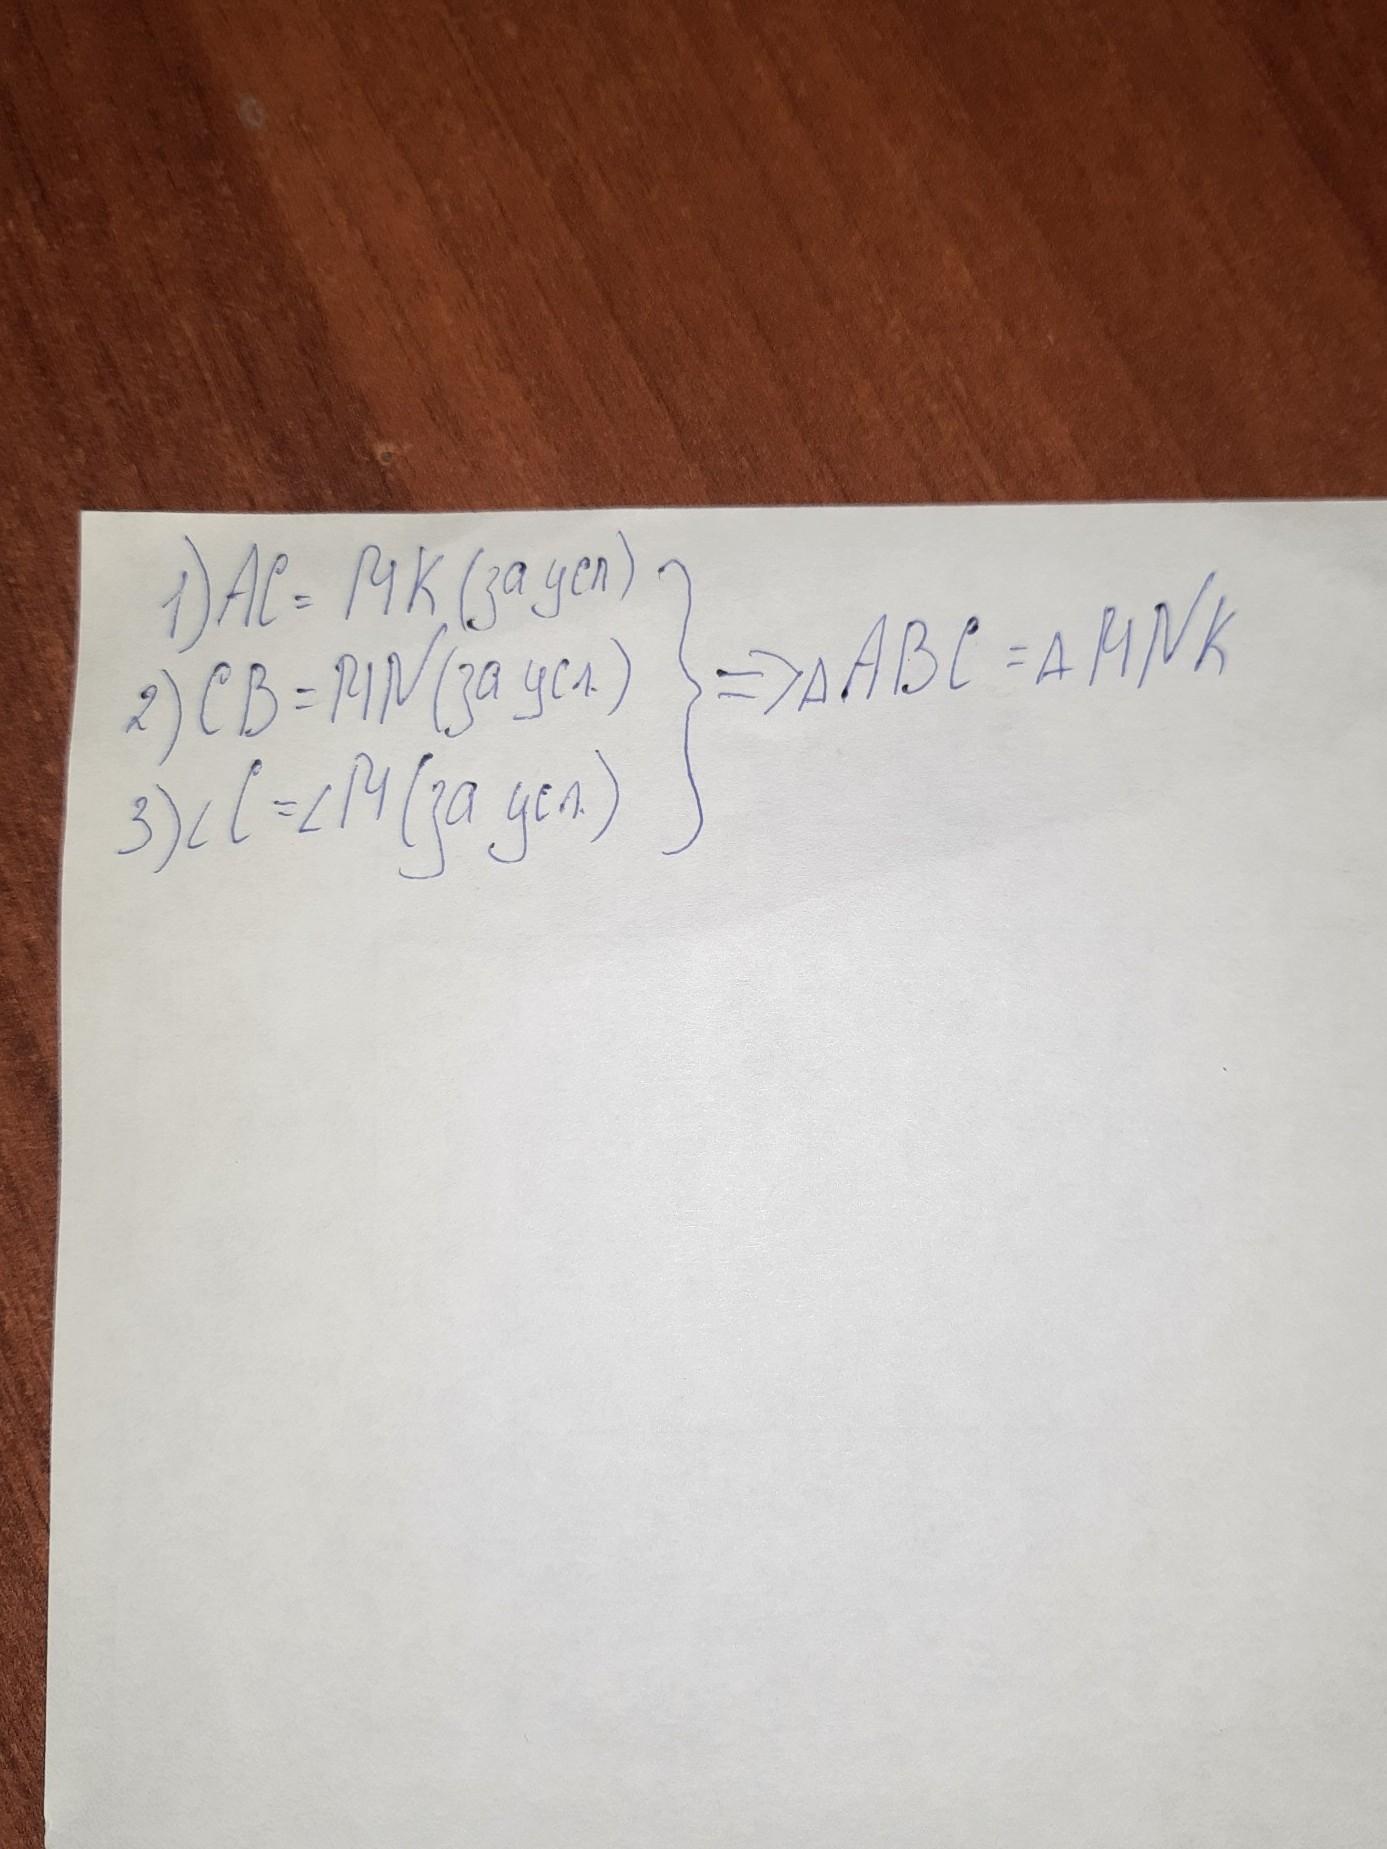 1) AC = MK (за усл)
2) CB = MN (за усл.)
3) ∠C = ∠M (за усл.)
} => △ABC = △MNK